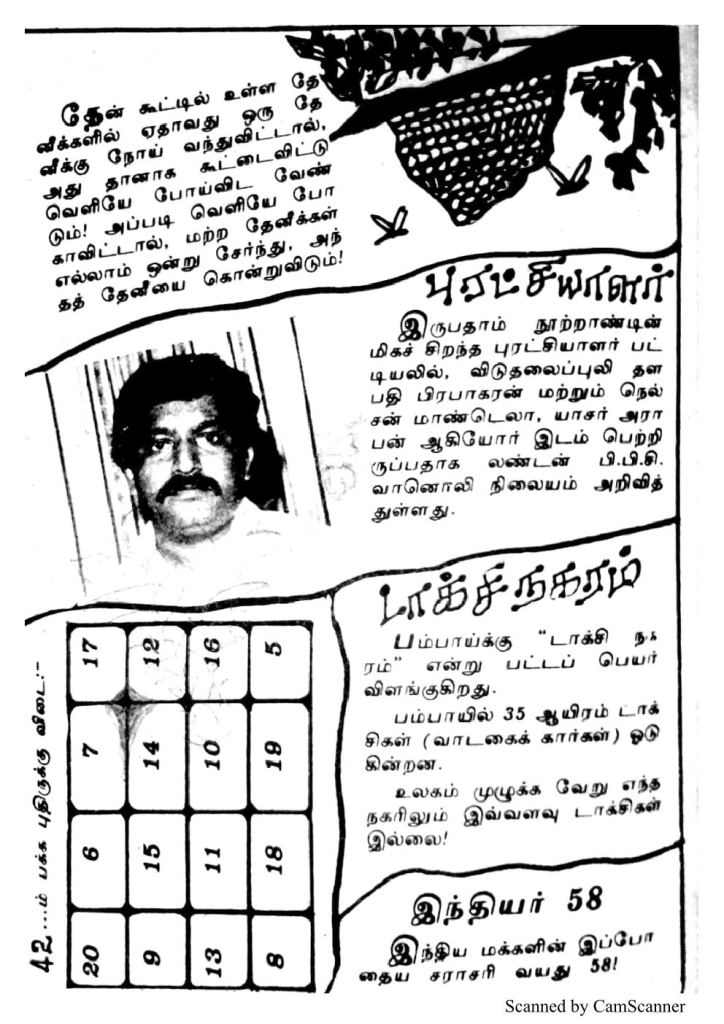 தேன் கூட்டில் உள்ள தே
னீக்களில் ஏதாவது ஒரு தே
னீக்கு நோய் வந்துவிட்டால்,
அது தானாக கூட்டைவிட்டு
வெளியே போய்விட வேண்
டும்! அப்படி வெளியே போ
காவிட்டால், மற்ற தேனீக்கள்
எல்லாம் ஒன்று சேர்ந்து, அந்
தத் தேனீயை கொன்றுவிடும்!
புரட்சியாளர்
இருபதாம் நூற்றாண்டின்
மிகச் சிறந்த புரட்சியாளர் பட்
டியலில், விடுதலைப்புலி தள
பதி பிரபாகரன் மற்றும் நெல்
சன் மாண்டெலா, யாசர் அரா
பன் ஆகியோர் இடம் பெற்றி
ருப்பதாக லண்டன் பி.பி.சி.
வானொலி நிலையம் அறிவித்
துள்ளது.
டாக்சி நகரம்
பம்பாய்க்கு "டாக்சி நக
ரம்" என்று பட்டப் பெயர்
விளங்குகிறது.
பம்பாயில் 35 ஆயிரம் டாக்
சிகள் (வாடகைக் கார்கள்) ஓடு
கின்றன.
உலகம் முழுக்க வேறு எந்த
நகரிலும் இவ்வளவு டாக்சிகள்
இல்லை!
இந்தியர் 58
இந்திய மக்களின் இப்போ
தைய சராசரி வயது 58!
42...ம் பக்க புதிருக்கு விடை:-
20 6 7 17
9 15 14 12
13 11 10 16
8 18 19 5
Scanned by CamScanner